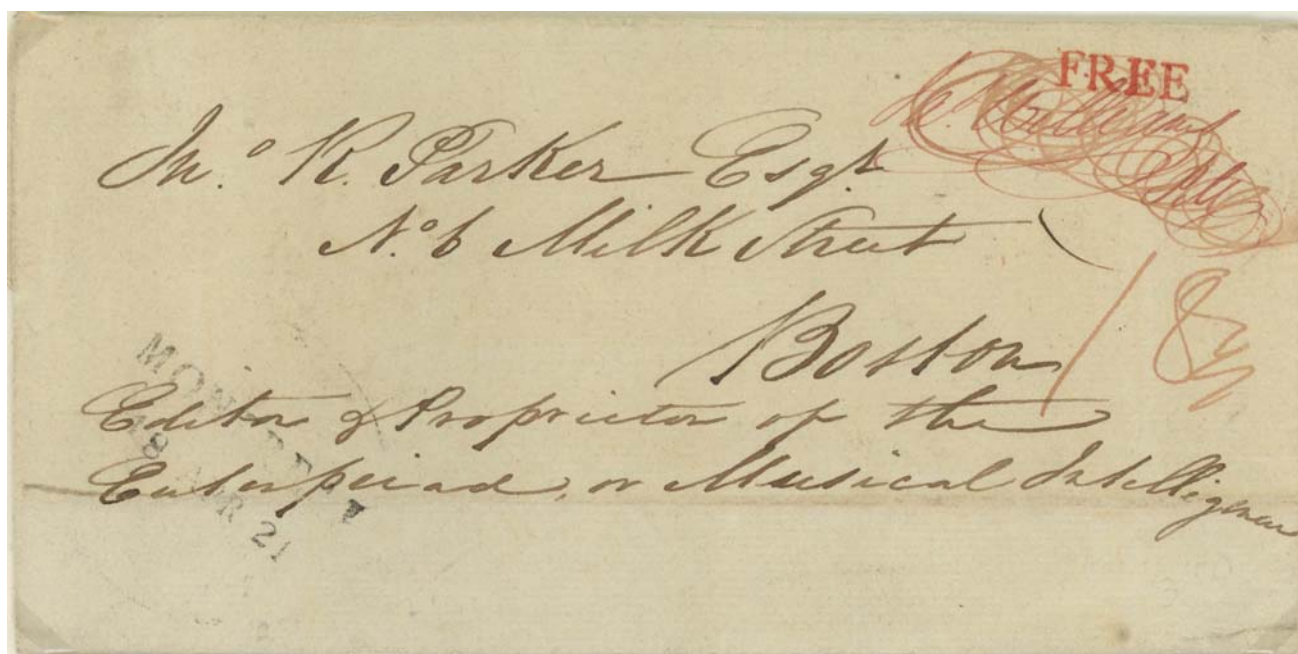 FREE
Jnº. R. Parker Esqr.
Nº. 6 Milk Street
Boston
Editor & Proprietor of the
Euterpeiad, or Musical Intelligencer
18
21